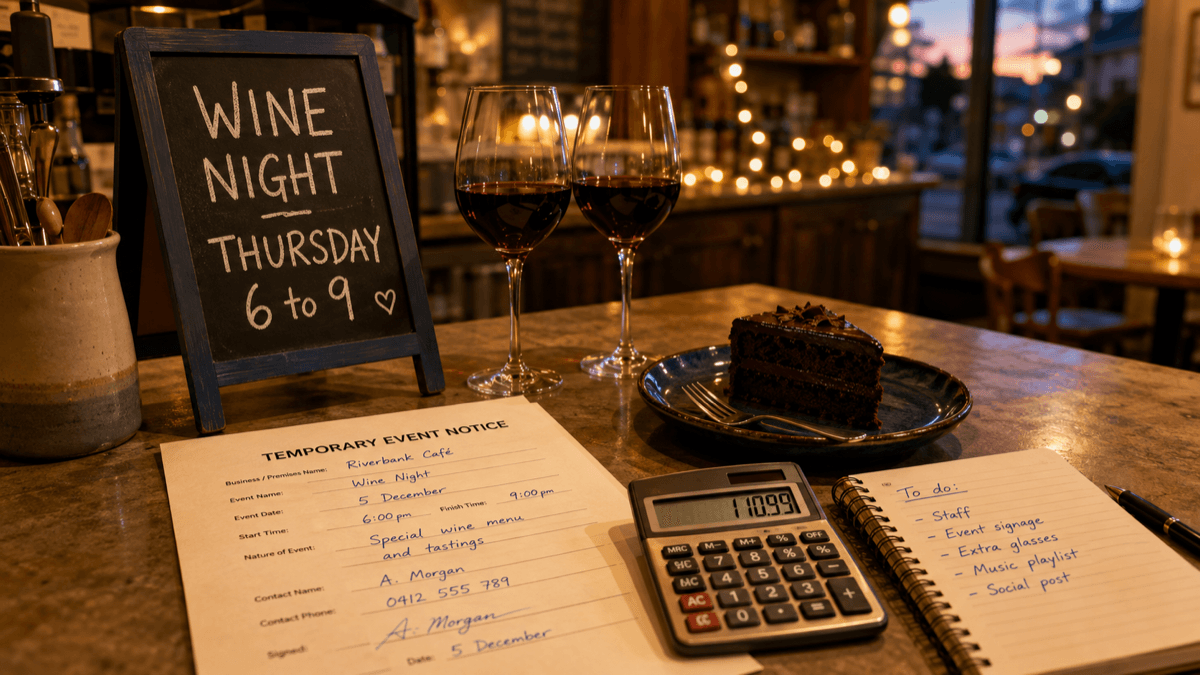 WINE
NIGHT
THURSDAY
6 to 9 ♡
TEMPORARY EVENT NOTICE
Business / Premises Name: Riverbank Café
Event Name: Wine Night
Event Date: 5 December
Start Time: 6:00pm Finish Time: 9:00pm
Nature of Event: Special wine menu
and tastings
Contact Name: A. Morgan
Contact Phone: 0412 555 789
Signed: A. Morgan
Date: 5 December
110.99
MRC M- M+ % OFF
7 8 9 % %
MC 4 5 6 −
AC 1 2 3 +
0 · =
To do:
- Staff
- Event signage
- Extra glasses
- Music playlist
- Social post